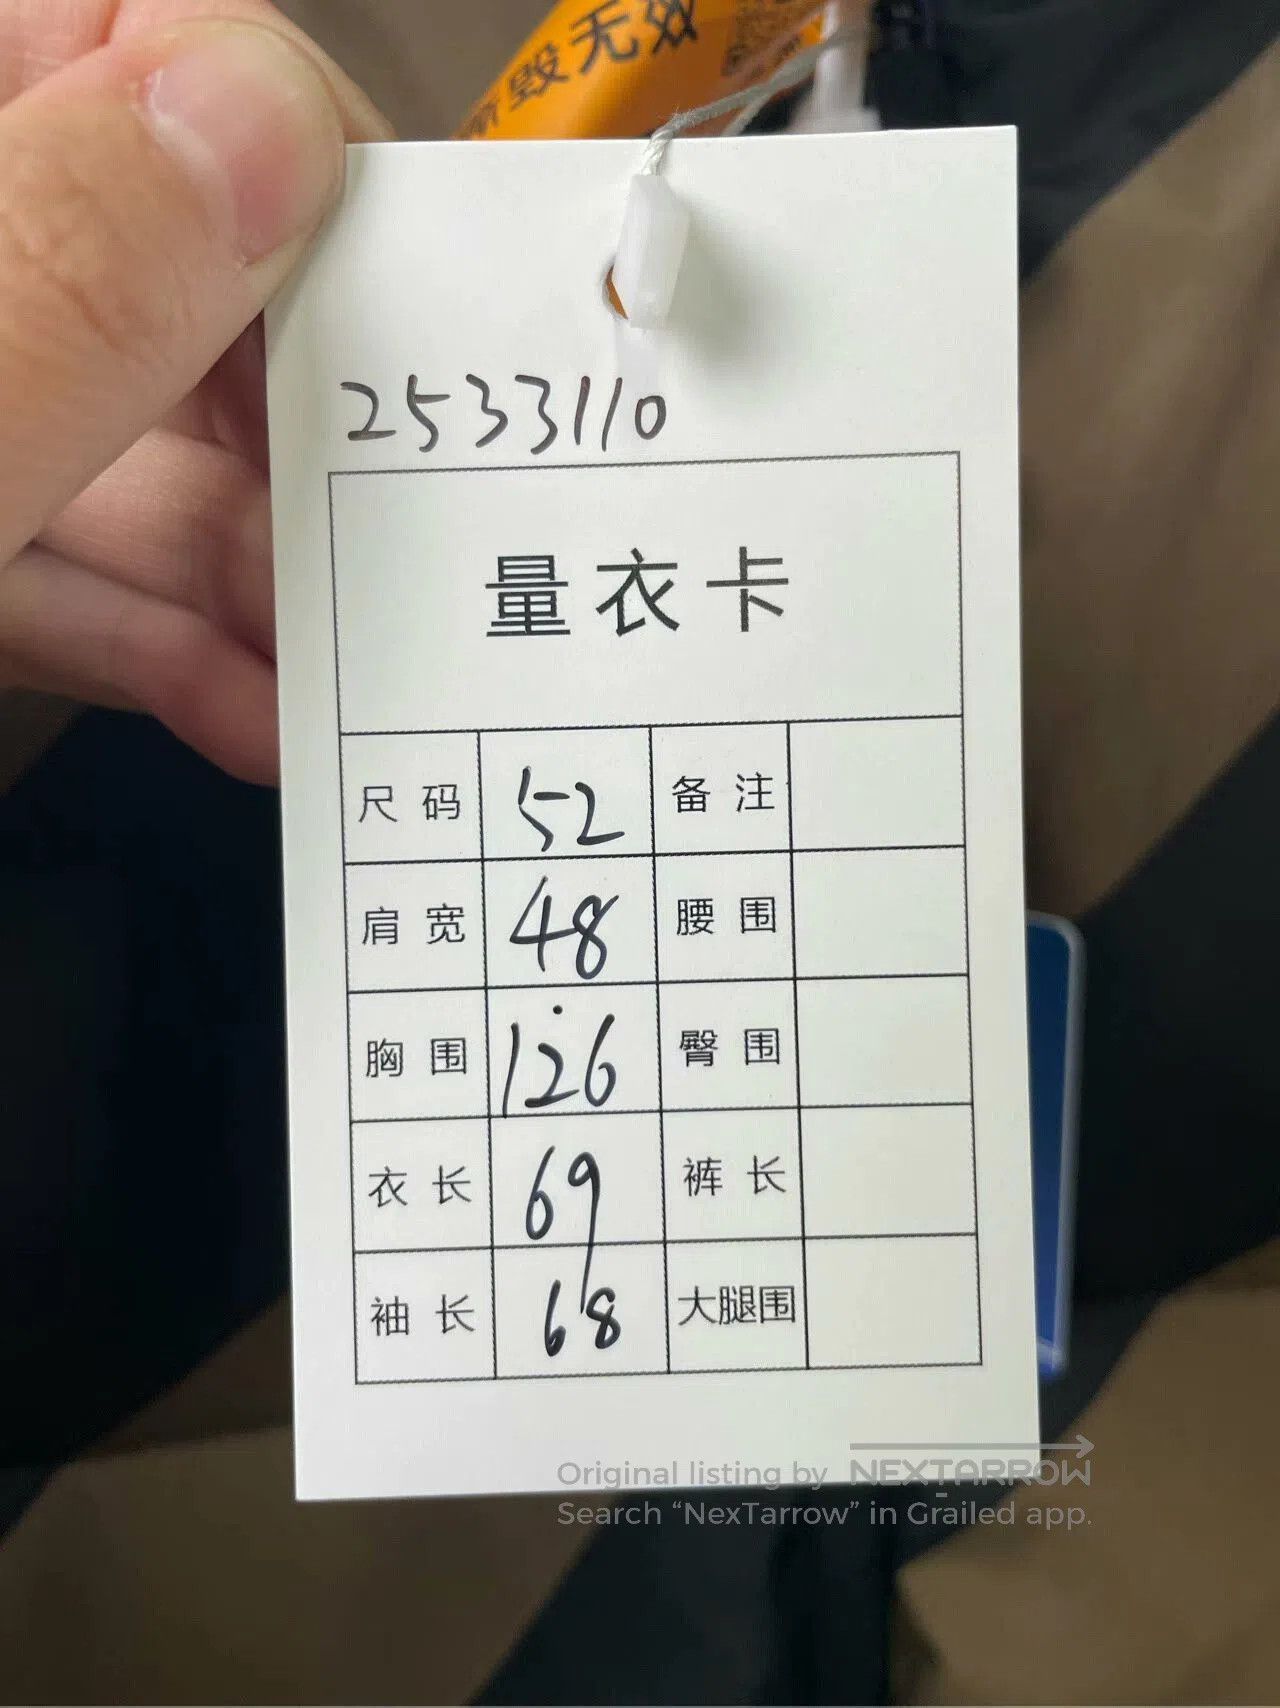 毁无效
2533110
量衣卡
尺码 52 备注
肩宽 48 腰围
胸围 126 臀围
衣长 69 裤长
袖长 68 大腿围
Original listing by NEXTARROW
Search “NexTarrow” in Grailed app.